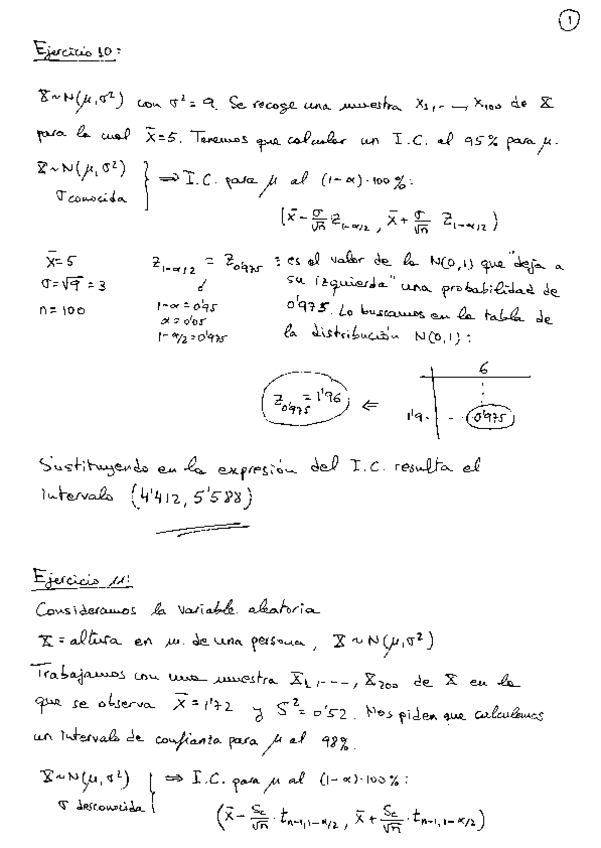 1
Ejercicio 10:
X~N(μ,σ²) con σ²=9. Se recoge una muestra x₁,..→x₁₀₀ de X
para la cual x̄=5. Tenemos que calcular un I.C. al 95% para μ.
X~N(μ,σ²) } ⇒ I.C. para μ al (1-α)·100%:
σ conocida
(x̄ - σ/√n z₁₋α/₂ , x̄ + σ/√n z₁₋α/₂)
x̄=5 z₁₋α/₂ = z₀'₉₇₅ : es el valor de la N(0,1) que "deja a
σ=√9=3 su izquierda" una probabilidad de
n=100 1-α=0'95 0'975. Lo buscamos en la tabla de
α=0'05
1-α/2=0'975 la distribución N(0,1):
6
z₀'₉₇₅=1'96 ⇐ 1'9. - - 0'975
Sustituyendo en la expresión del I.C. resulta el
intervalo (4'412, 5'588)
Ejercicio 11:
Consideramos la variable aleatoria
X=altura en m. de una persona, X~N(μ,σ²)
Trabajamos con una muestra X₁,---,X₂₀₀ de X en la
que se observa x̄=1'72 y S²=0'52. Nos piden que calculemos
un intervalo de confianza para μ al 98%.
X~N(μ,σ²) } ⇒ I.C. para μ al (1-α)·100%:
σ desconocida
(x̄ - Sc/√n · tₙ₋₁,₁₋α/₂ , x̄ + Sc/√n · tₙ₋₁,₁₋α/₂)